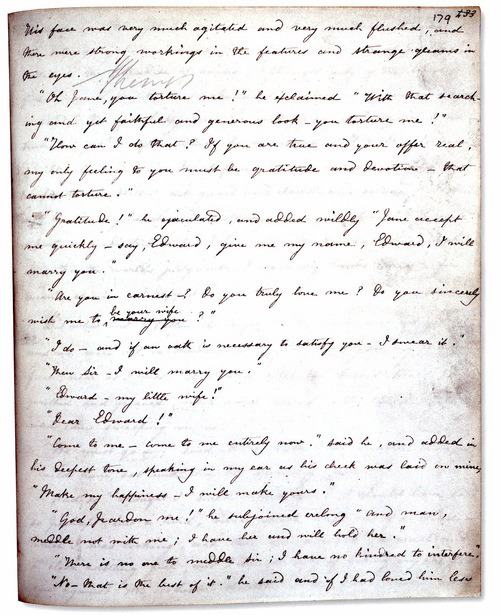 179 433
His face was very much agitated and very much flushed, and
there were strong workings in the features and strange gleams in
the eyes.
"Oh Jane, you torture me!" he exclaimed "With that search-
ing and yet faithful and generous look - you torture me!"
"How can I do that? If you are true and your offer real,
my only feeling to you must be gratitude and devotion - that
cannot torture."
"Gratitude!" he ejaculated, and added wildly "Jane accept
me quickly - say, Edward, give me my name, Edward, I will
marry you."
Are you in earnest -? Do you truly love me? Do you sincerely
be your wife
wish me to marry you?"
"I do - and if an oath is necessary to satisfy you - I swear it."
"Then Sir - I will marry you."
"Edward - my little wife!"
"Dear Edward!"
"Come to me - come to me entirely now." said he, and added in
his deepest tone, speaking in my ear as his cheek was laid on mine,
"Make my happiness - I will make yours."
"God, pardon me!" he subjoined erelong "and man,
meddle not with me; I have her and will hold her."
"There is no one to meddle Sir; I have no kindred to interfere."
"No - that is the best of it." he said and if I had loved him less